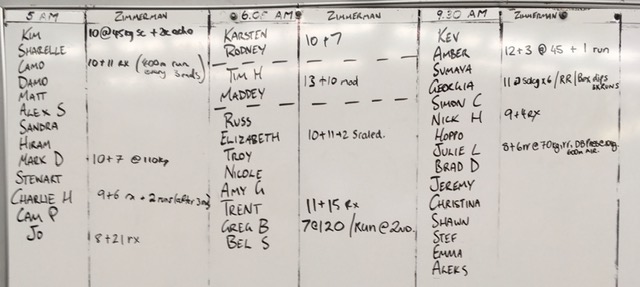 5 AM ZIMMERMAN
KIM 10@45kg sc + 2k echo
SHARELLE
CAMO 10+11 RX (400m run every 3 rnds)
DAMO
MATT
ALEX S
SANDRA
HIRAM
MARK D 10+7 @ 110kg
STEWART
CHARLIE H 9+6 rx + 2 runs (after 3rd)
CAM P
JO 8+21 rx
6.05 AM ZIMMERMAN
KARSTEN 10+7
RODNEY
TIM H 13+10 mod
MADDEY
RUSS
ELIZABETH 10+11+2 Scaled.
TROY
NICOLE
AMY G
TRENT 11+15 Rx
GREG B 7@120 / Run @ 2nd.
BEL S
9.30 AM ZIMMERMAN
KEV
AMBER 12+3 @ 45 + 1 run
SUMAYA
GEORGIA 11@50kg x6 / RR / Box dips
5x RUNS
SIMON C
NICK H 9+4 RX
HOPPO
JULIE L 8+6rr@70kg, rr, DB Press
600m AIR.
BRAD D
JEREMY
CHRISTINA
SHAWN
STEF
EMMA
ALEKS